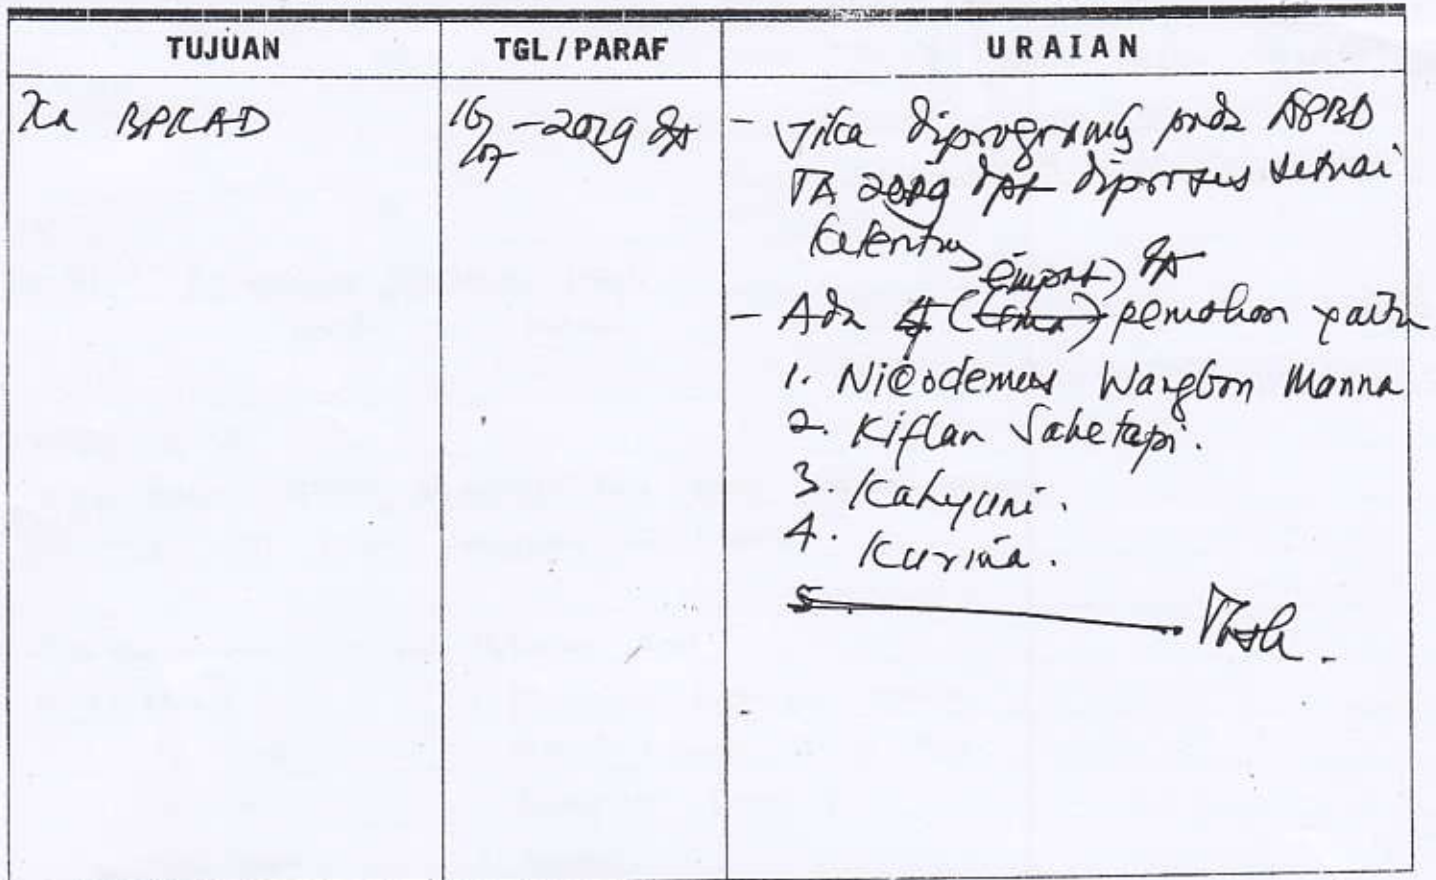 TUJUAN TGL / PARAF URAIAN
Ka BPKAD
16/07 - 2019
- Jika diprogramkan pada APBD
TA 2019 dpt diproses sesuai
ketentuan
empat)
- Ada 4 (lima) pemohon yaitu
1. Nicodemus Wangbon Manna
2. Kiflan Sahetapi.
3. Kahyuni.
4. Kurina.
5.